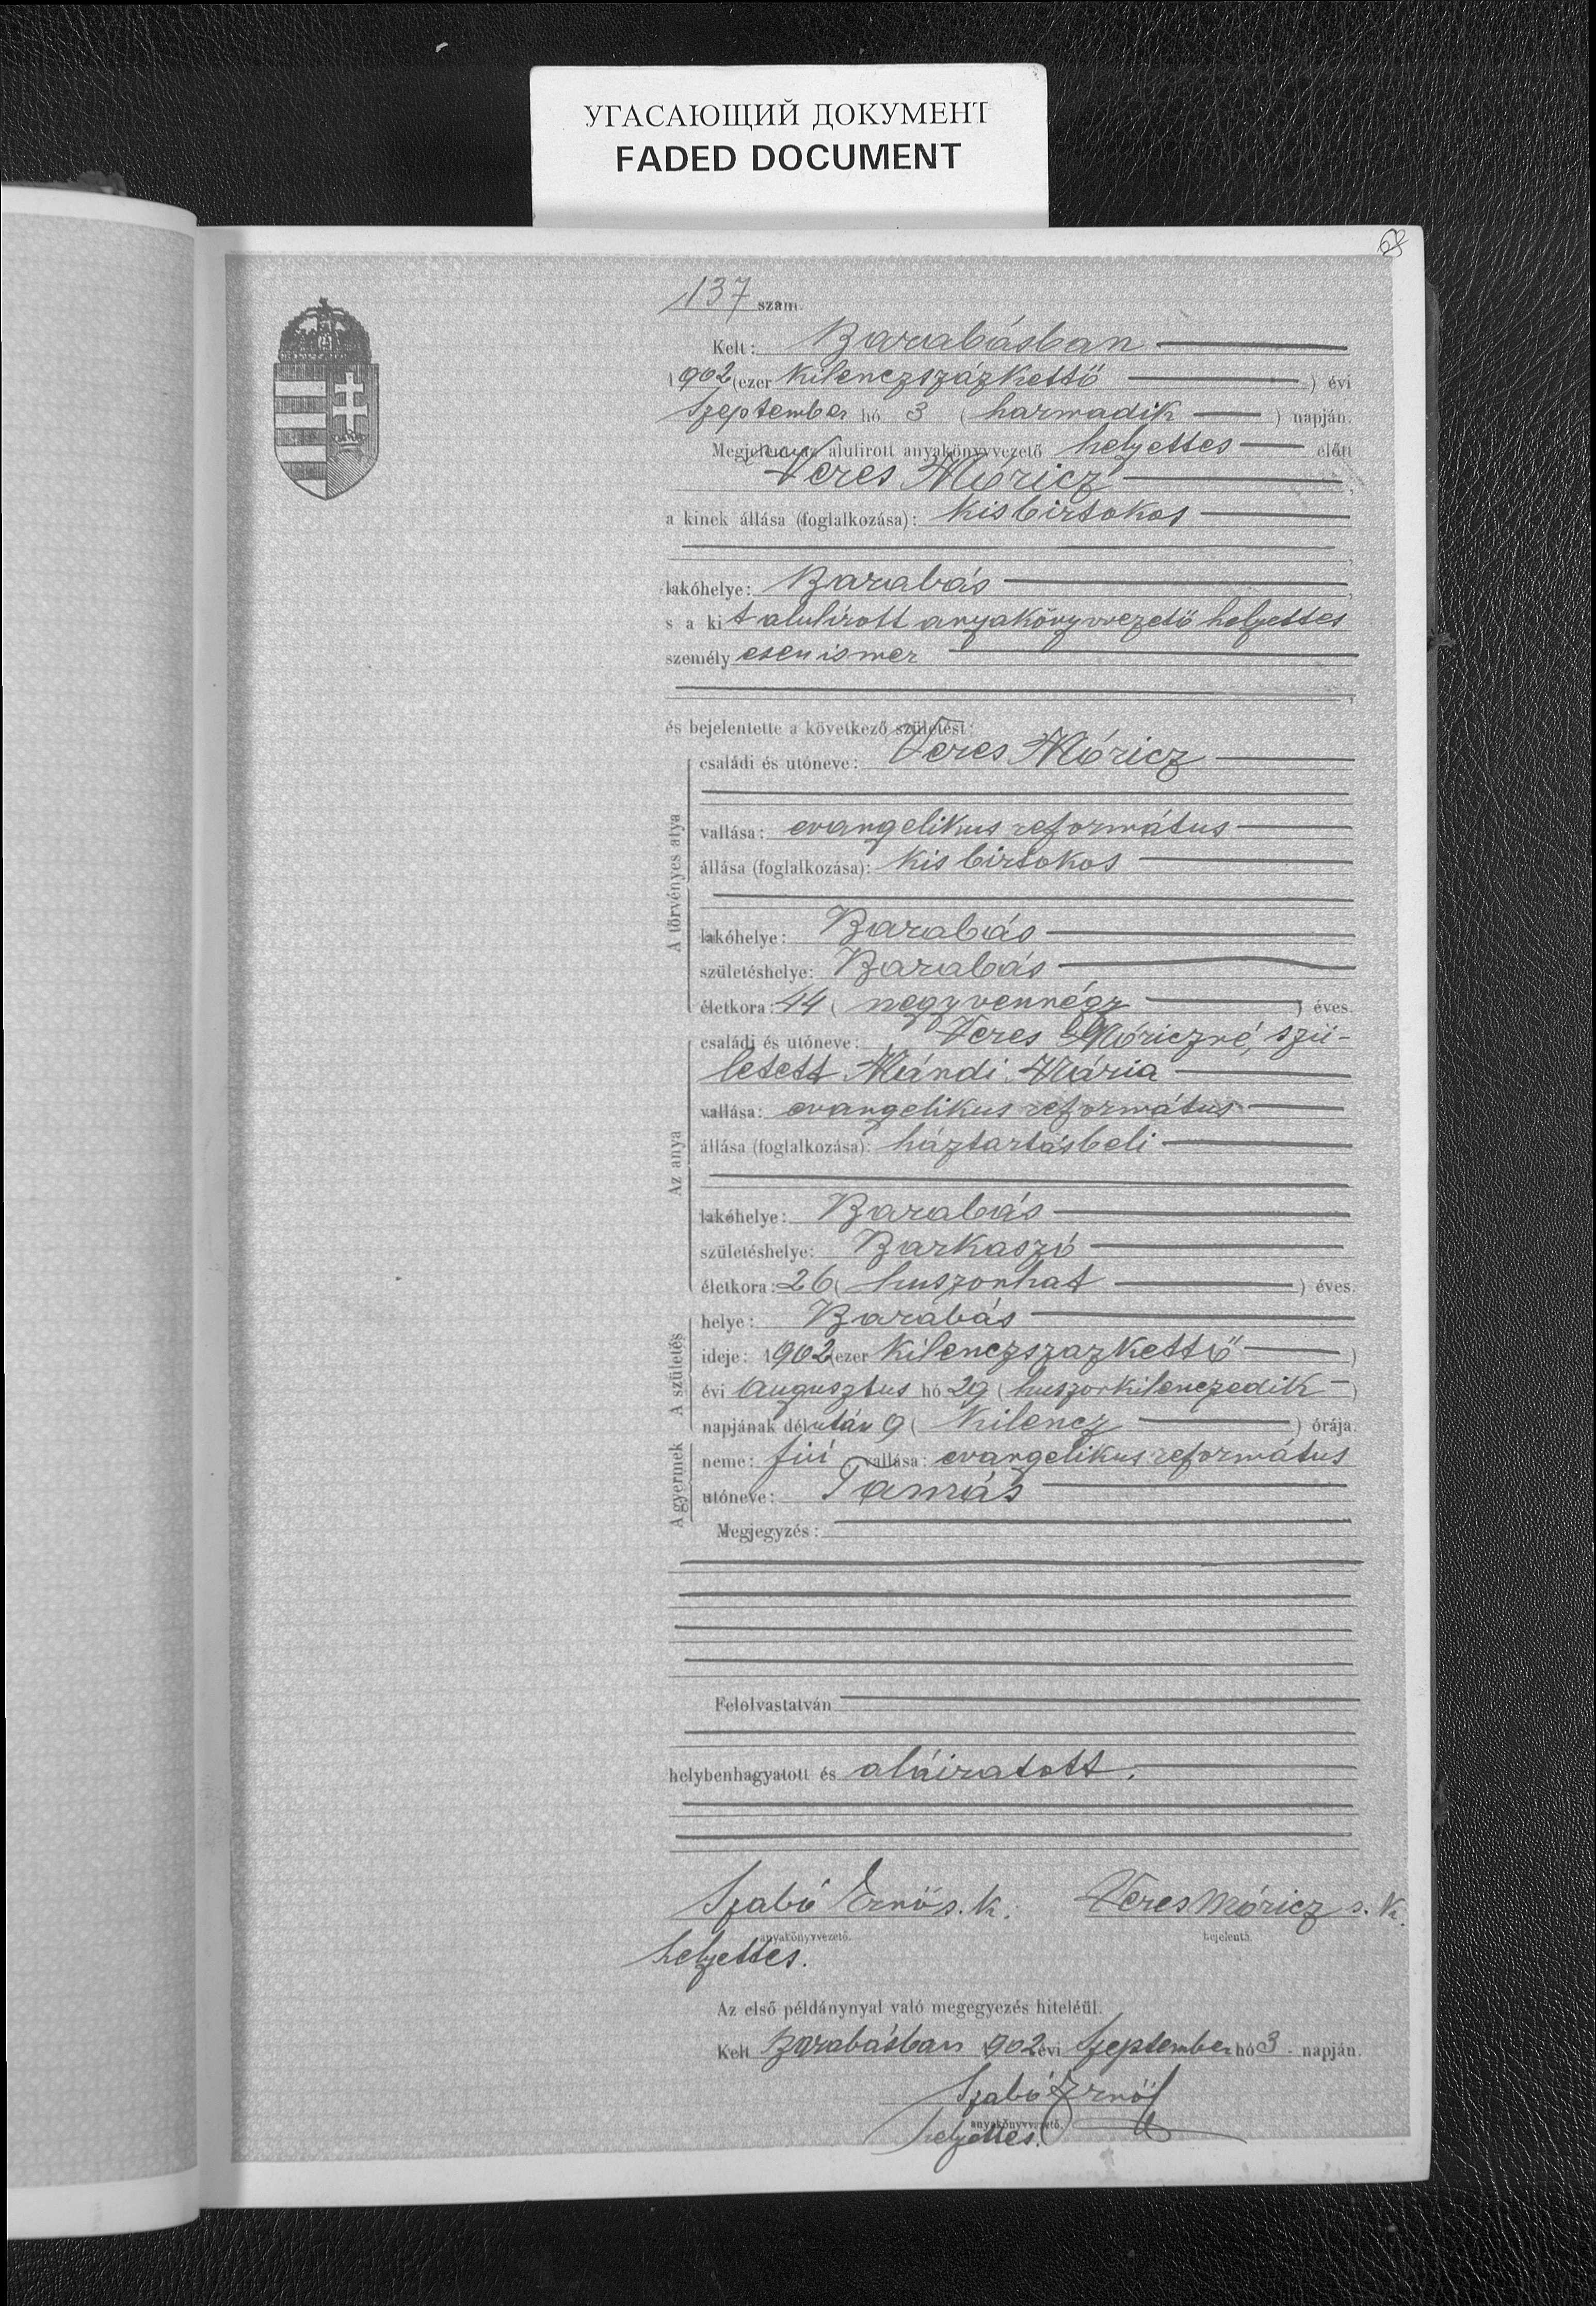 УГАСАЮЩИЙ ДОКУМЕНТ
FADED DOCUMENT
68
137 szám.
Kelt: Barabásban
1902 (ezer kilenczszázkettő ) évi
Szeptember hó 3 ( harmadik ) napján.
Megjelent az alulirott anyakönyvvezető helyettes előtt
Veres Móricz ,
a kinek állása (foglalkozása): kisbirtokos
,
lakóhelye: Barabás ,
s a kit alulírott anyakönyvvezető helyettes
személyesen ismer
,
és bejelentette a következő születést:
A törvényes atya
családi és utóneve: Veres Móricz
vallása: evangelikus református
állása (foglalkozása): kis birtokos
lakóhelye: Barabás
születéshelye: Barabás
életkora: 44 ( negyvennégy ) éves.
Az anya
családi és utóneve: Veres Móriczné, szü-
letett Mándi Mária
vallása: evangelikus református
állása (foglalkozása): háztartásbeli
lakóhelye: Barabás
születéshelye: Barkaszó
életkora: 26 ( huszonhat ) éves.
A születés
helye: Barabás
ideje: 1902 (ezer kilenczszazkettő )
évi Augusztus hó 29 ( huszonkilenczedik )
napjának délután 9 ( kilencz ) órája.
A gyermek
neme: fiú ; vallása: evangelikus református
utóneve: Tamás
Megjegyzés:
Felolvastatván
helybenhagyatott és aláiratott.
Szabó Ernő s. k. Veres Móricz s. k.
anyakönyvvezető. bejelentő.
helyettes.
Az első példánynyal való megegyezés hiteléül.
Kelt Barabásban 1902 évi Szeptember hó 3. napján.
Szabó Ernő
anyakönyvvezető.
helyettes.